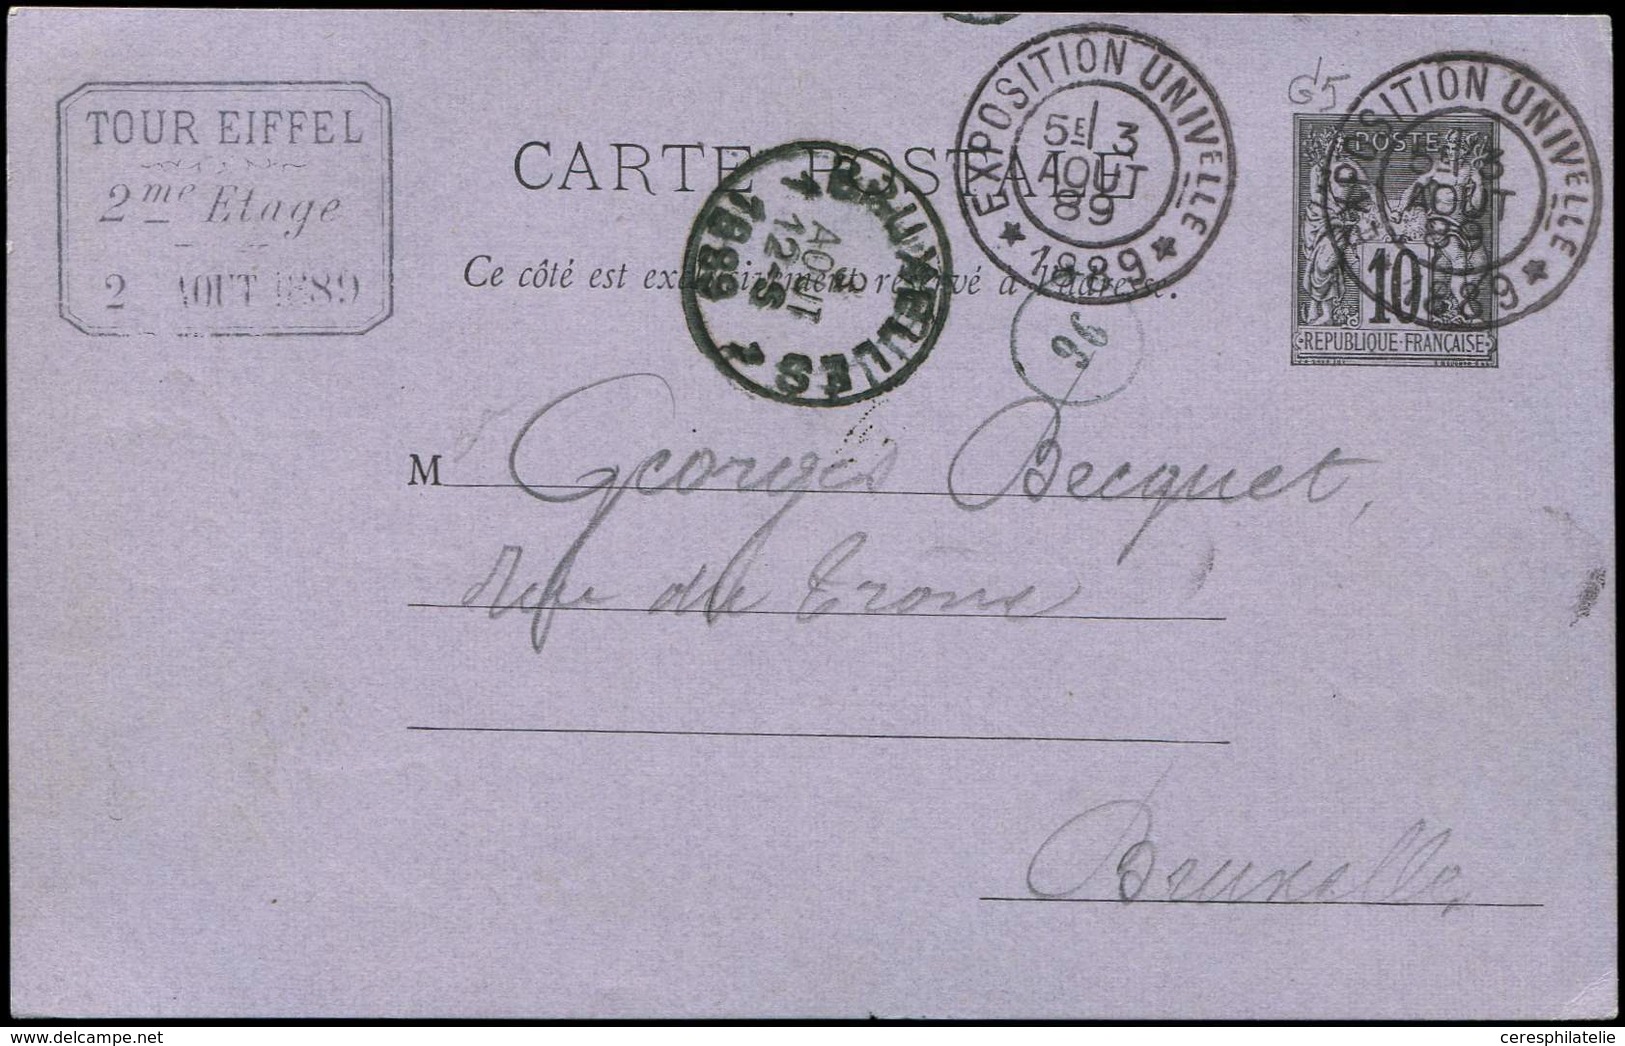 TOUR EIFFEL
2me Etage
2 AOUT 1889
CARTE POSTALE
Ce côté est exclusivement réservé à l'adresse.
EXPOSITION UNIVELLE
5E 3
AOUT
89
1889
EXPOSITION UNIVELLE
5E 3
AOUT
89
1889
G5
POSTE
10
REPUBLIQUE FRANÇAISE
BRUXELLES 1
AOUT
12-S
1889
96
M Georges Becquet,
Rue du Trône
Bruxelles
ceresphilatelie